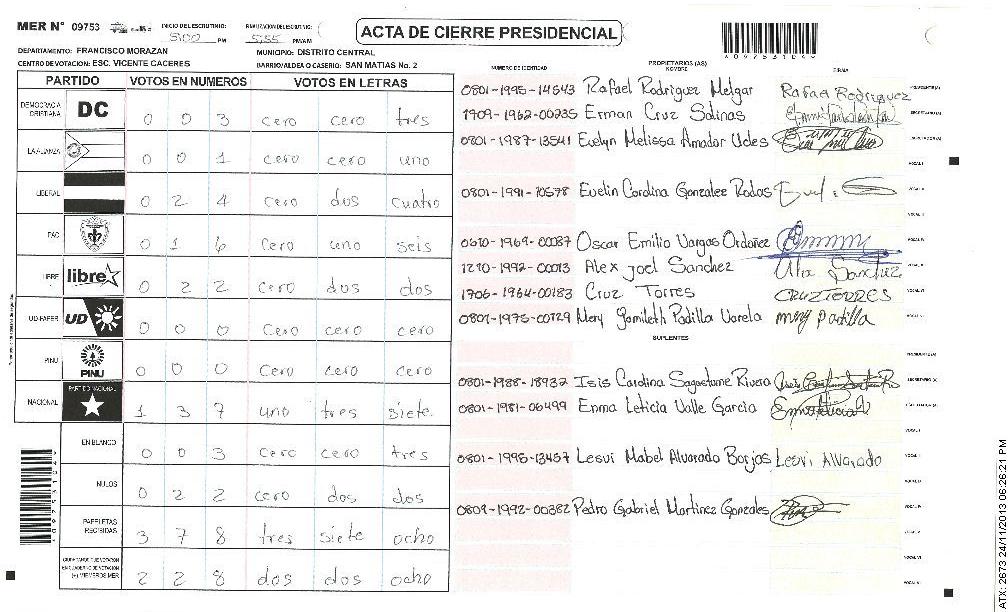 MER N° 09753
INICIO DEL ESCRUTINIO: 5:00 PM
FINALIZACION DEL ESCRUTINIO: 5:55 PM/AM
ACTA DE CIERRE PRESIDENCIAL
DEPARTAMENTO: FRANCISCO MORAZAN
MUNICIPIO: DISTRITO CENTRAL
CENTRO DE VOTACION: ESC. VICENTE CACERES
BARRIO/ALDEA O CASERIO: SAN MATIAS No. 2
PARTIDO VOTOS EN NUMEROS VOTOS EN LETRAS
DEMOCRACIA CRISTIANA DC 0 0 3 cero cero tres
LA ALIANZA 0 0 1 cero cero uno
LIBERAL 0 2 4 cero dos cuatro
PAC 0 1 6 cero uno seis
LIBRE libre 0 2 2 cero dos dos
UD-FAPER UD 0 0 0 cero cero cero
PINU PINU 0 0 0 cero cero cero
NACIONAL PARTIDO NACIONAL 1 3 7 uno tres siete
EN BLANCO 0 0 3 cero cero tres
NULOS 0 2 2 cero dos dos
PAPELETAS RECIBIDAS 3 7 8 tres siete ocho
CIUDADANOS QUE VOTARON EN CUADERNO DE VOTACION (+) MIEMBROS MER 2 2 8 dos dos ocho
NUMERO DE IDENTIDAD PROPIETARIOS (AS) NOMBRE FIRMA
0801-1995-14543 Rafael Rodriguez Melgar Rafael Rodriguez
1709-1962-00235 Erman Cruz Salinas
0801-1987-13541 Evelyn Melissa Amador Udes
0801-1991-10578 Evelin Carolina Gonzalez Rodas
0610-1969-00087 Oscar Emilio Vargas Ordoñez
1210-1992-00013 Alex Joel Sanchez Alex Sanchez
1706-1964-00183 Cruz Torres CRUZ TORRES
0801-1975-00729 Mery Yamileth Padilla Varela mery Padilla
SUPLENTES
0801-1988-18932 Isis Carolina Sagastume Rivera
0801-1981-06499 Enma Leticia Valle Garcia
0801-1995-13457 Lesvi Mabel Alvarado Borjas Lesvi Alvarado
0801-1992-00382 Pedro Gabriel Martinez Gonzales
ATX: 2673 24/11/2013 06:26:21 PM